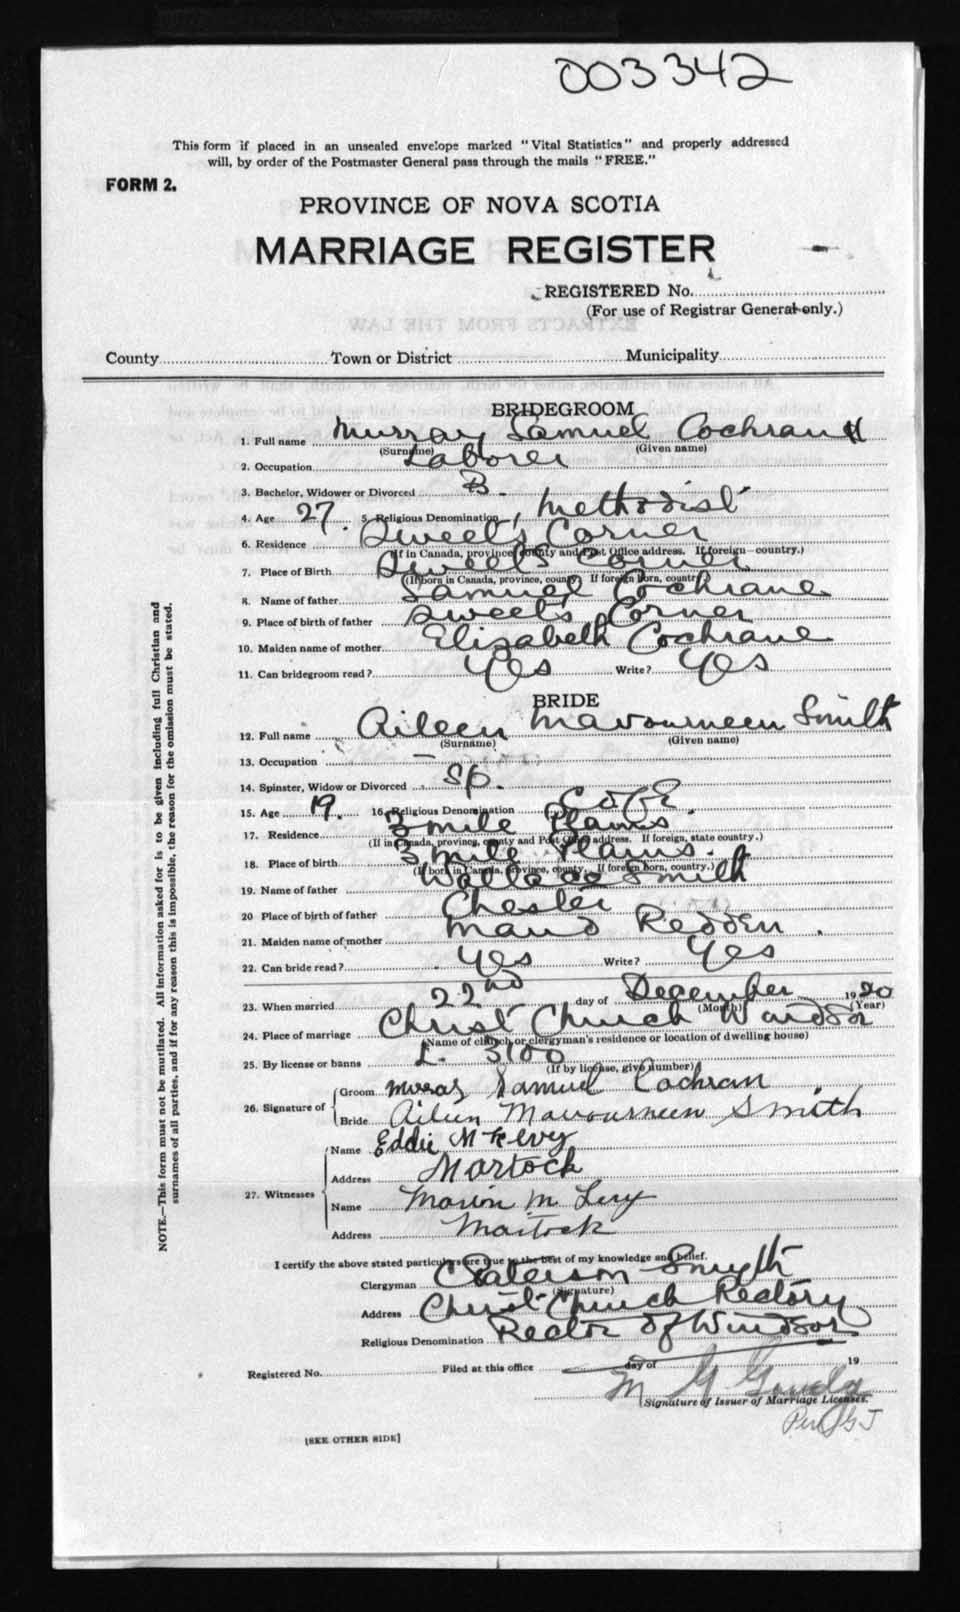 003342
This form if placed in an unsealed envelope marked "Vital Statistics" and properly addressed
will, by order of the Postmaster General pass through the mails "FREE."
FORM 2.
PROVINCE OF NOVA SCOTIA
MARRIAGE REGISTER
REGISTERED No.
(For use of Registrar General only.)
County Town or District Municipality
BRIDEGROOM
1. Full name Murray Samuel Cochran
(Surname) (Given name)
2. Occupation Laborer
3. Bachelor, Widower or Divorced B.
4. Age 27. 5. Religious Denomination Methodist
6. Residence Sweets Corner
(If in Canada, province, county and Post Office address. If foreign—country.)
7. Place of Birth Sweets Corner
(If born in Canada, province, county. If foreign born, country.)
8. Name of father Samuel Cochrane
9. Place of birth of father Sweets Corner
10. Maiden name of mother Elizabeth Cochrane
11. Can bridegroom read? Yes Write? Yes
BRIDE
12. Full name Aileen Mavourneen Smith
(Surname) (Given name)
13. Occupation —
14. Spinster, Widow or Divorced Sp.
15. Age 19. 16. Religious Denomination C of E.
17. Residence 3 mile Plains.
(If in Canada, province, county and Post Office address. If foreign, state country.)
18. Place of birth 3 mile Plains.
(If born in Canada, province, county. If foreign born, country.)
19. Name of father Smith
20 Place of birth of father Chester
21. Maiden name of mother Maud Redden.
22. Can bride read? Yes Write? Yes
23. When married 22nd day of December 1920
(Month) (Year)
24. Place of marriage Christ Church Windsor
(Name of church or clergyman's residence or location of dwelling house)
25. By license or banns L. 3100
(If by license, give number)
26. Signature of
Groom Samuel Cochran
Bride Aileen Mavourneen Smith
27. Witnesses
Name Eddie
Address Martock
Name Marion M
Address Martock
I certify the above stated particulars are true to the best of my knowledge and belief.
Clergyman Paterson Smyth
(Signature)
Address Christ Church Rectory
Religious Denomination Rector of Windsor
Registered No. Filed at this office day of 19
M G
Signature of Issuer of Marriage Licenses.
Per
[SEE OTHER SIDE]
NOTE.—This form must not be mutilated. All information asked for is to be given including full Christian and
surnames of all parties, and if for any reason this is impossible, the reason for the omission must be stated.